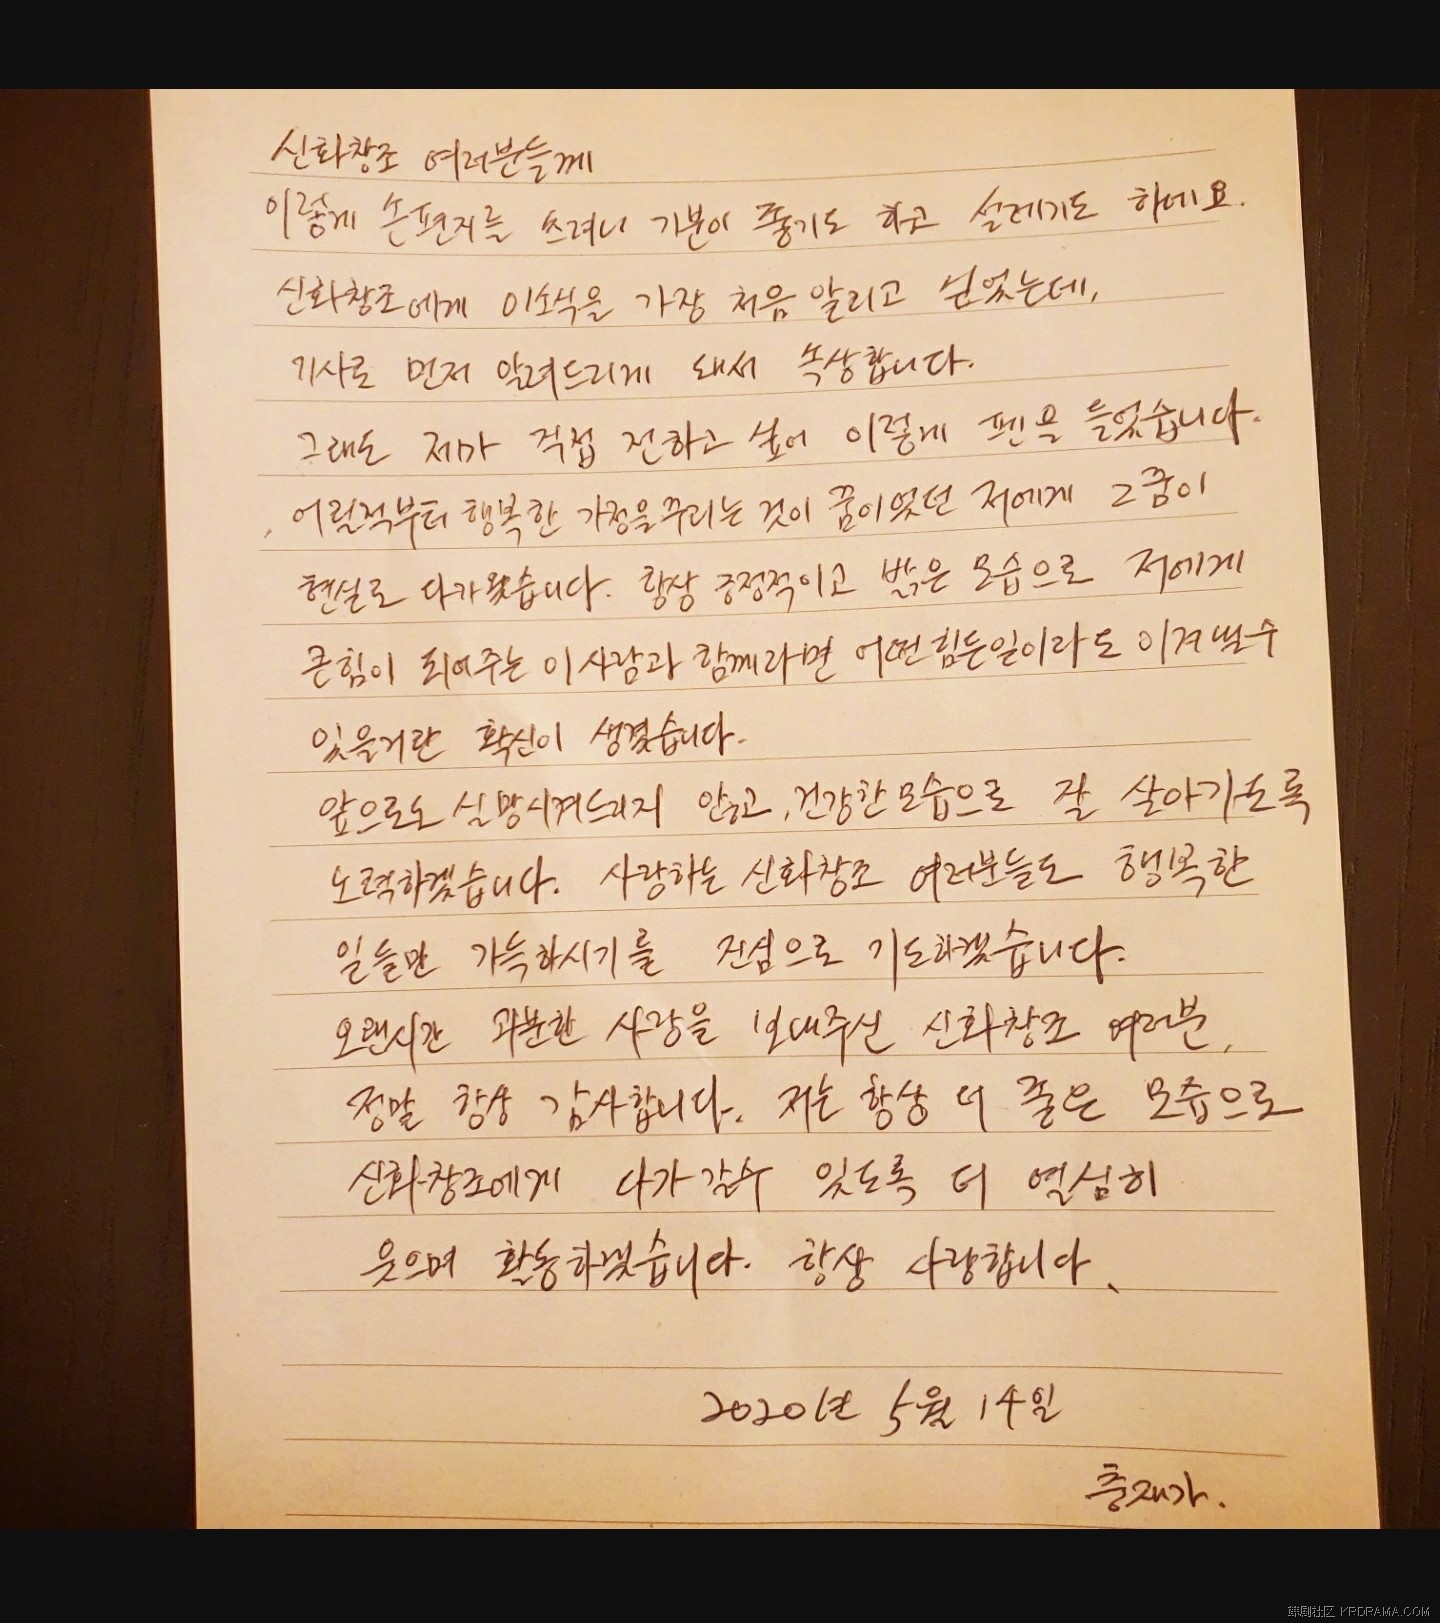 신화창조 여러분들께
이렇게 손편지를 쓰려니 기분이 좋기도 하고 설레기도 하네요.
신화창조에게 이소식을 가장 처음 알리고 싶었는데,
기사로 먼저 알려드리게 돼서 속상합니다.
그래도 제가 직접 전하고 싶어 이렇게 펜을 들었습니다.
어릴적부터 행복한 가정을꾸리는 것이 꿈이었던 저에게 그 꿈이
현실로 다가왔습니다. 항상 긍정적이고 밝은 모습으로 저에게
큰힘이 되어주는 이사람과 함께라면 어떤힘든일이라도 이겨낼수
있을거란 확신이 생겼습니다.
앞으로도 실망시켜드리지 않고, 건강한 모습으로 잘 살아가도록
노력하겠습니다. 사랑하는 신화창조 여러분들도 행복한
일들만 가득하시기를 진심으로 기도하겠습니다.
오랜시간 과분한 사랑을 보내주신 신화창조 여러분,
정말 항상 감사합니다. 저는 항상 더 좋은 모습으로
신화창조에게 다가갈수 있도록 더 열심히
웃으며 활동하겠습니다. 항상 사랑합니다.
2020년 5월 14일
충재가.
韩剧社区 KRDRAMA.COM